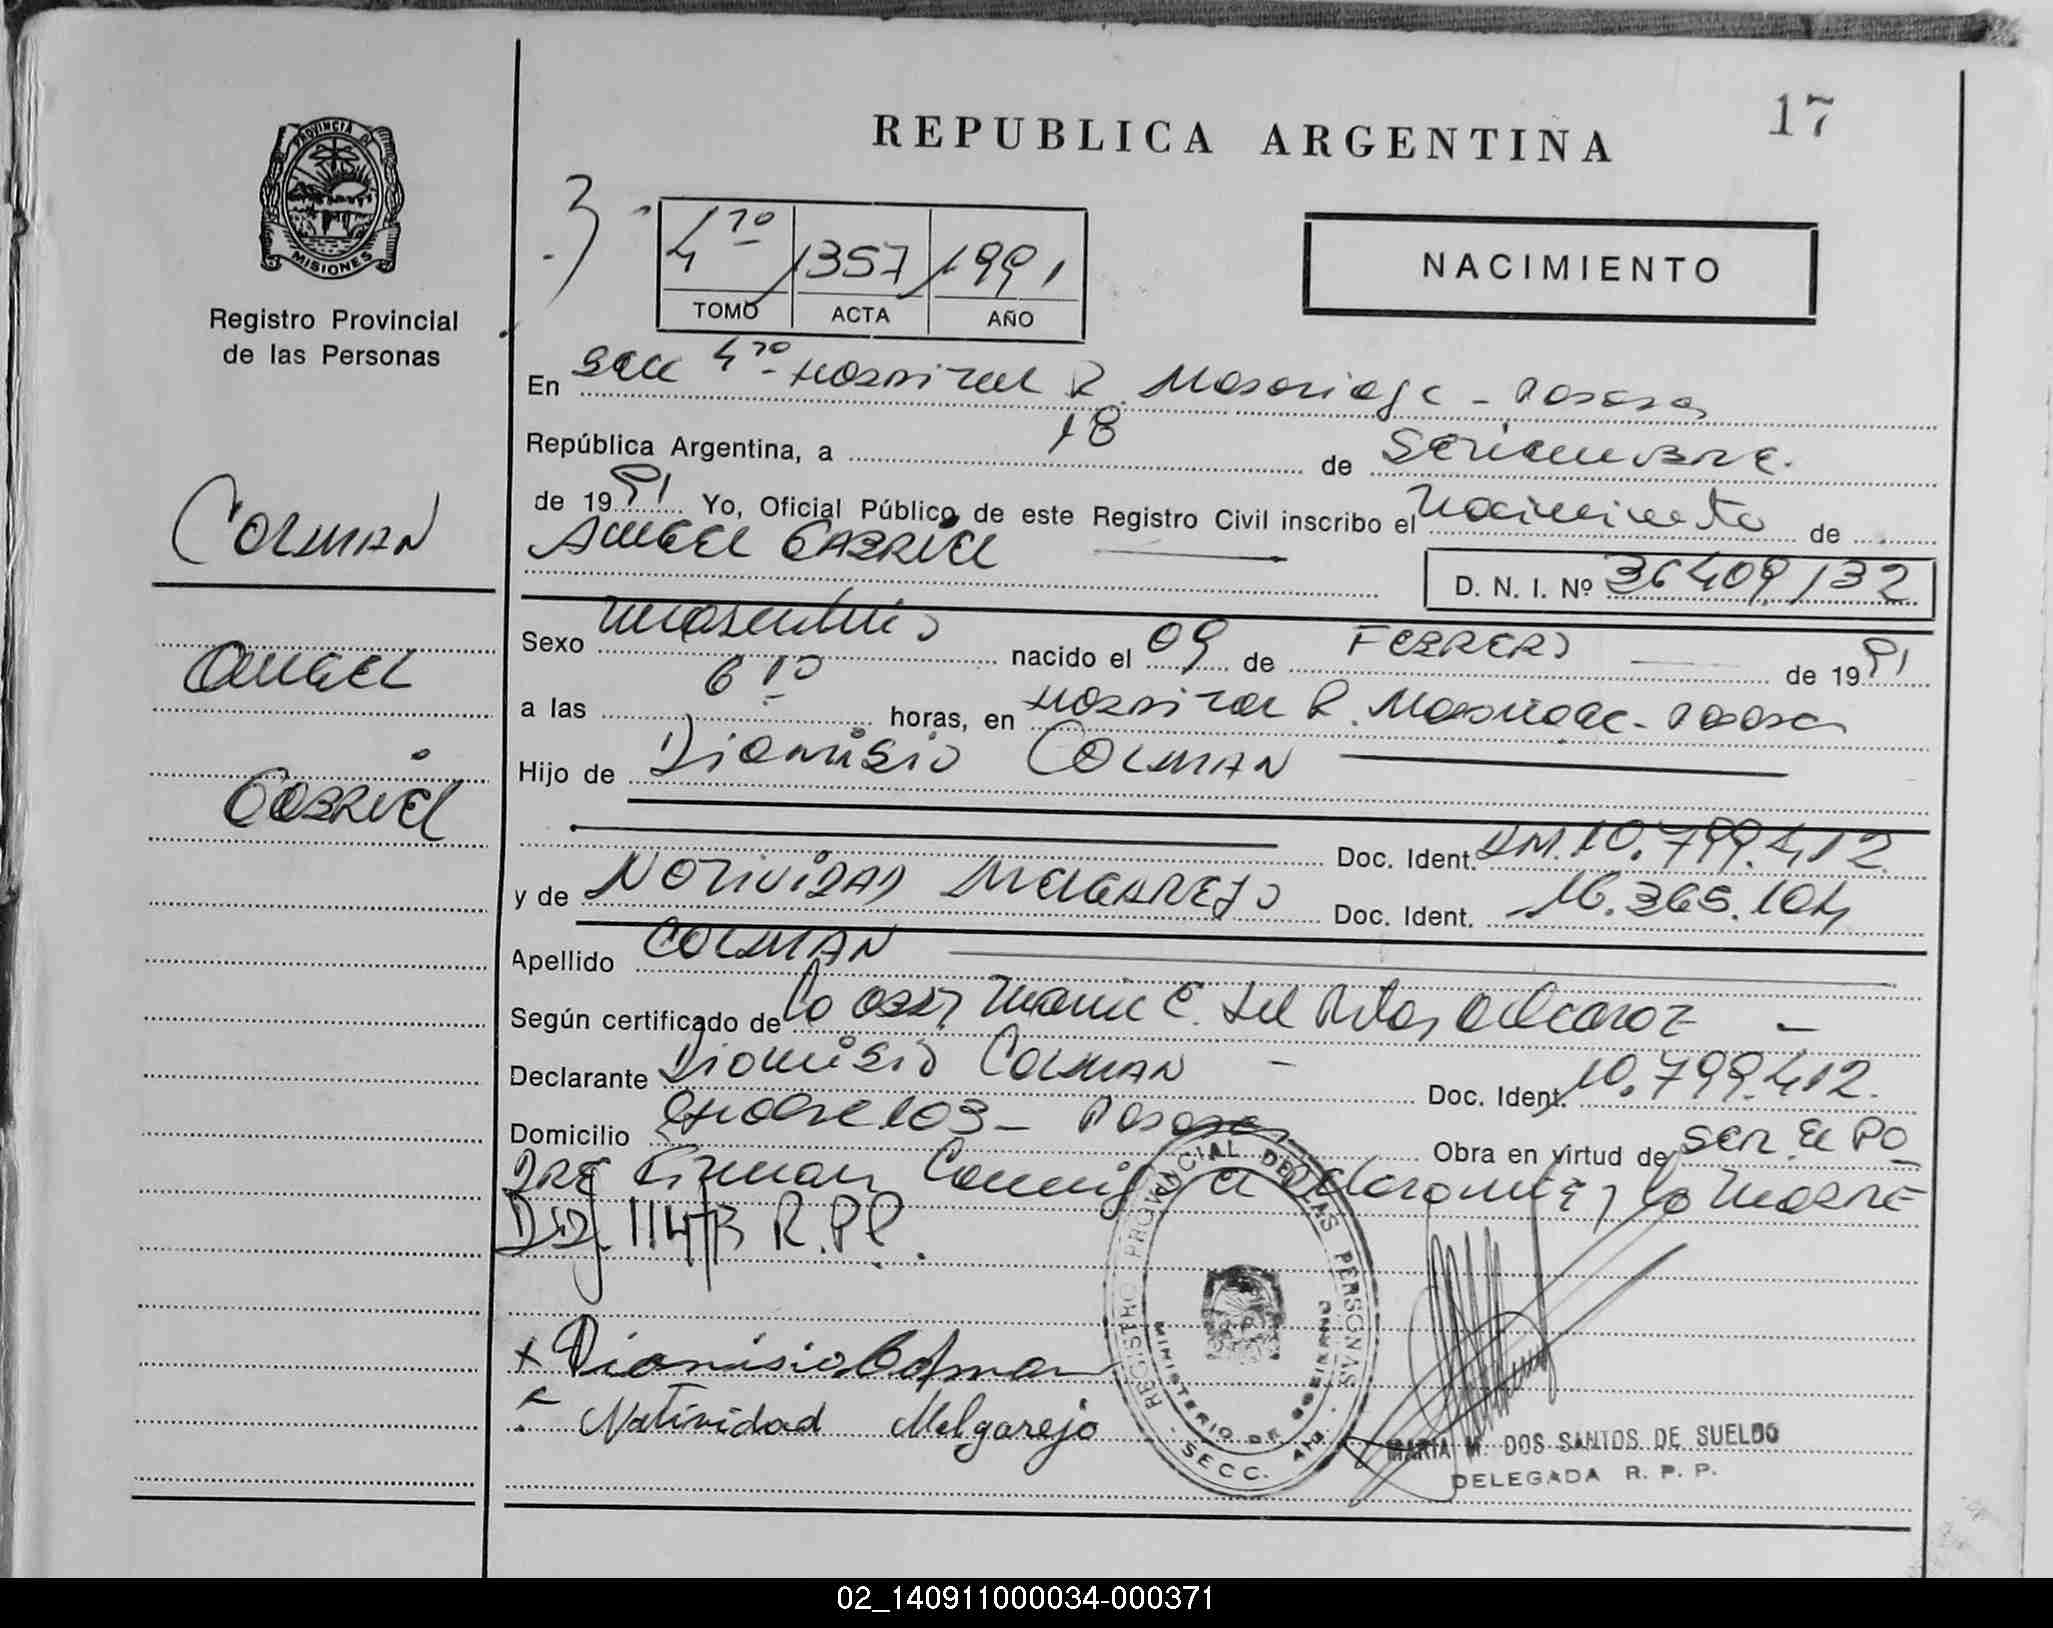 17
REPUBLICA ARGENTINA
PROVINCIA DE
MISIONES
Registro Provincial
de las Personas
3
4to 1357 1991
TOMO ACTA AÑO
NACIMIENTO
En Secc 4to Hospital R. Madariaga - Posadas
República Argentina, a 18 de Setiembre.
de 1991 Yo, Oficial Público de este Registro Civil inscribo el Nacimiento de
ANGEL GABRIEL
D. N. I. Nº 36409132
COLMAN
ANGEL
GABRIEL
Sexo masculino nacido el 09 de FEBRERO de 1991
a las 6 10 horas, en Hospital R. Madariaga - Posadas
Hijo de Dionisio COLMAN
Doc. Ident. DM. 10.799.412
y de NATIVIDAD MELGAREJO Doc. Ident. 16.365.104
Apellido COLMAN
Según certificado de la Obst Maria E. del Alcaraz
Declarante Dionisio COLMAN - Doc. Ident. 10.799.412.
Domicilio 103 - Posadas Obra en virtud de SER EL PA
DRE Firman el declarante y la MADRE
Dis. 114/73 R.P.P.
+ Dionisio Colman
Natividad Melgarejo
REGISTRO PROVINCIAL DE LAS PERSONAS
MINISTERIO DE GOBIERNO
SECC. 4ta
MARIA M. DOS SANTOS DE SUELDO
DELEGADA R. P. P.
02_140911000034-000371